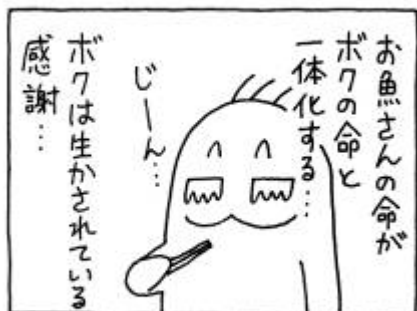 お魚さんの命が
ボクの命と
一体化する…
じーん…
ボクは生かされている
感謝…